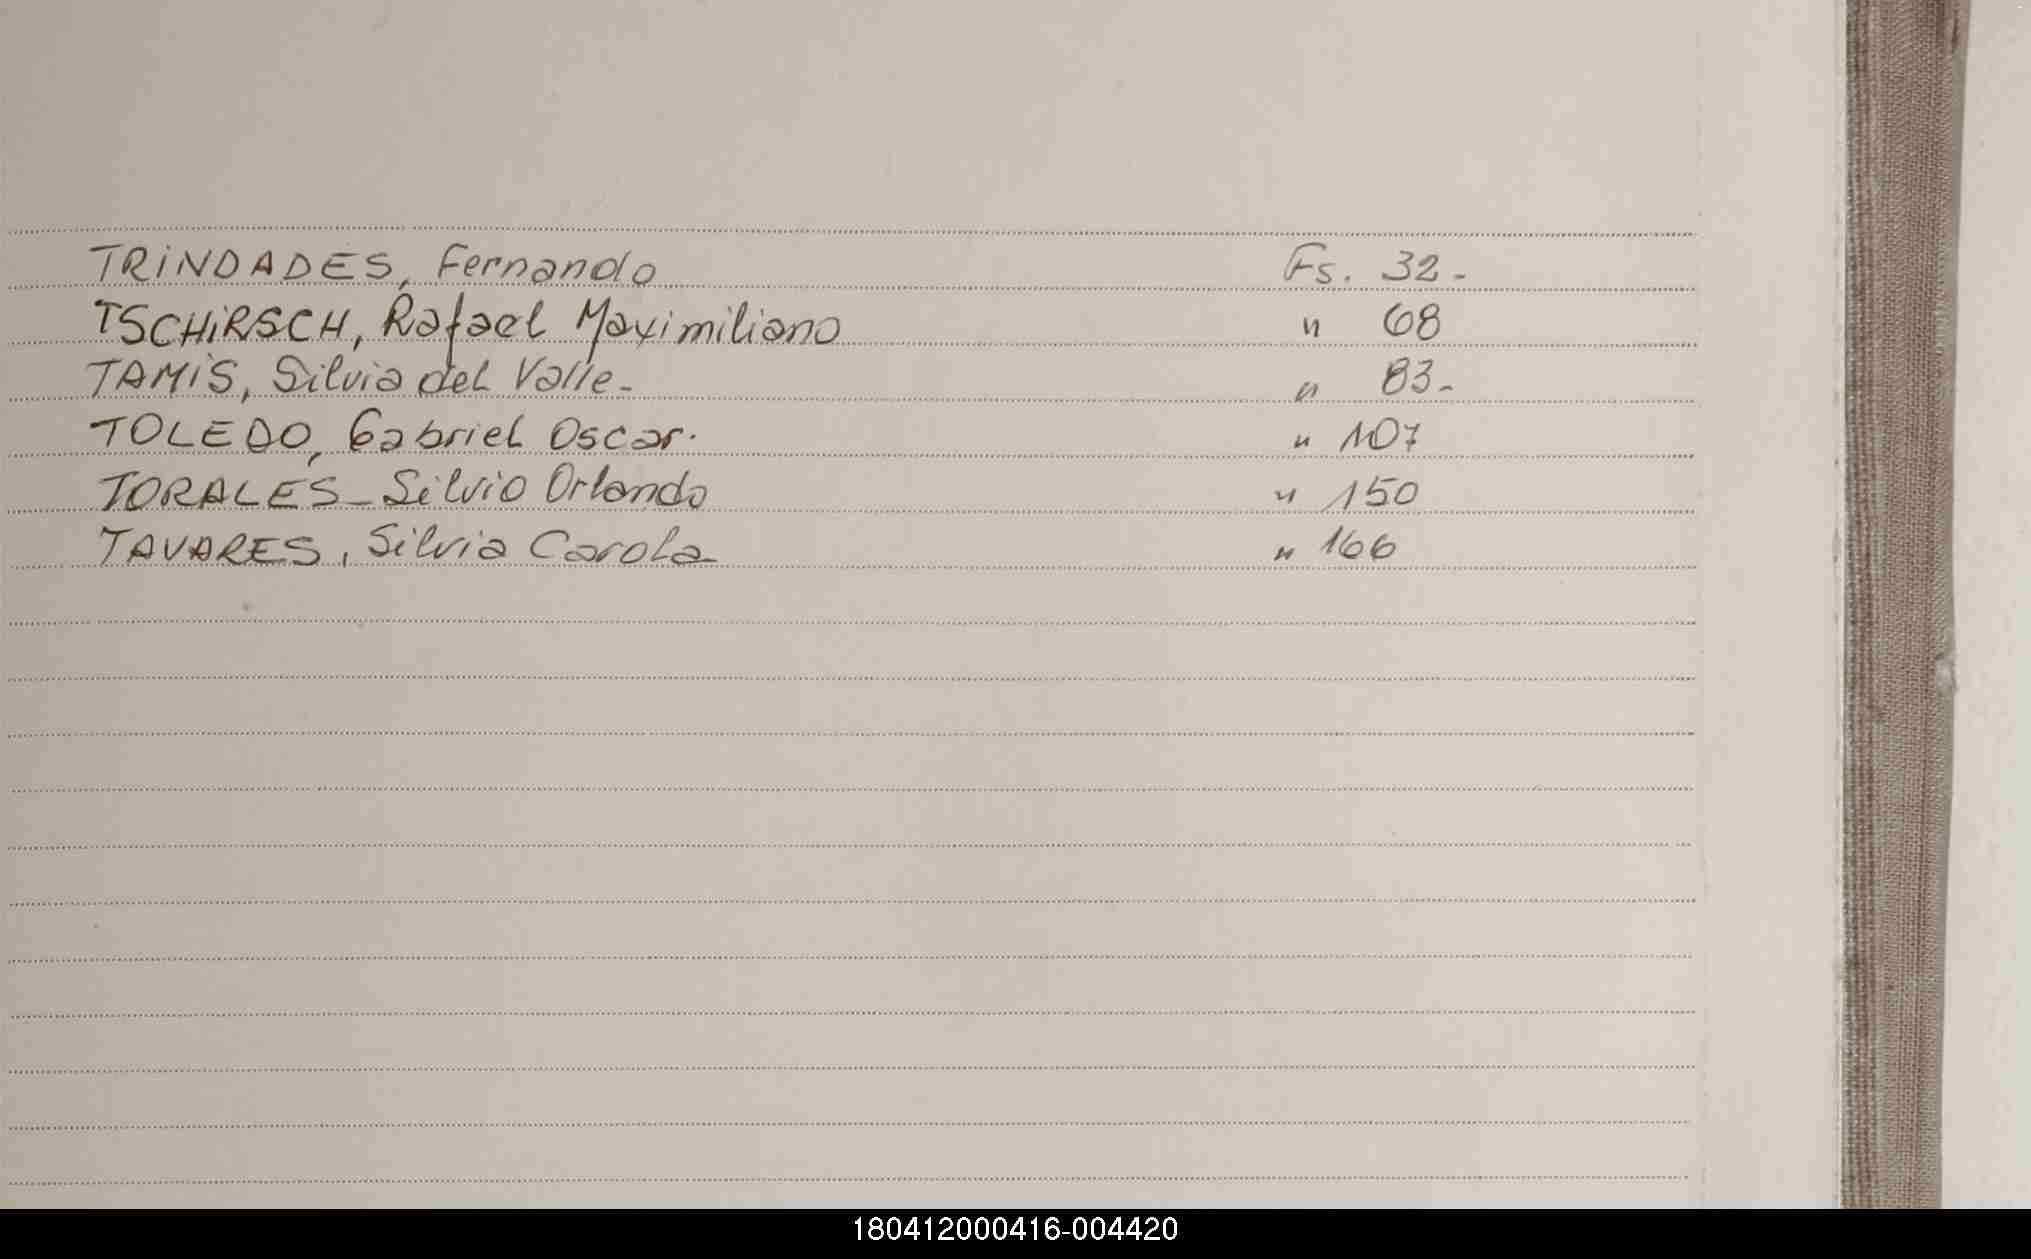 TRINDADES, Fernando Fs. 32-
TSCHIRSCH, Rafael Maximiliano " 68
TAMIS, Silvia del Valle- " 83-
TOLEDO, Gabriel Oscar. " 107
TORALES- Silvio Orlando " 150
TAVARES, Silvia Carola " 166
180412000416-004420